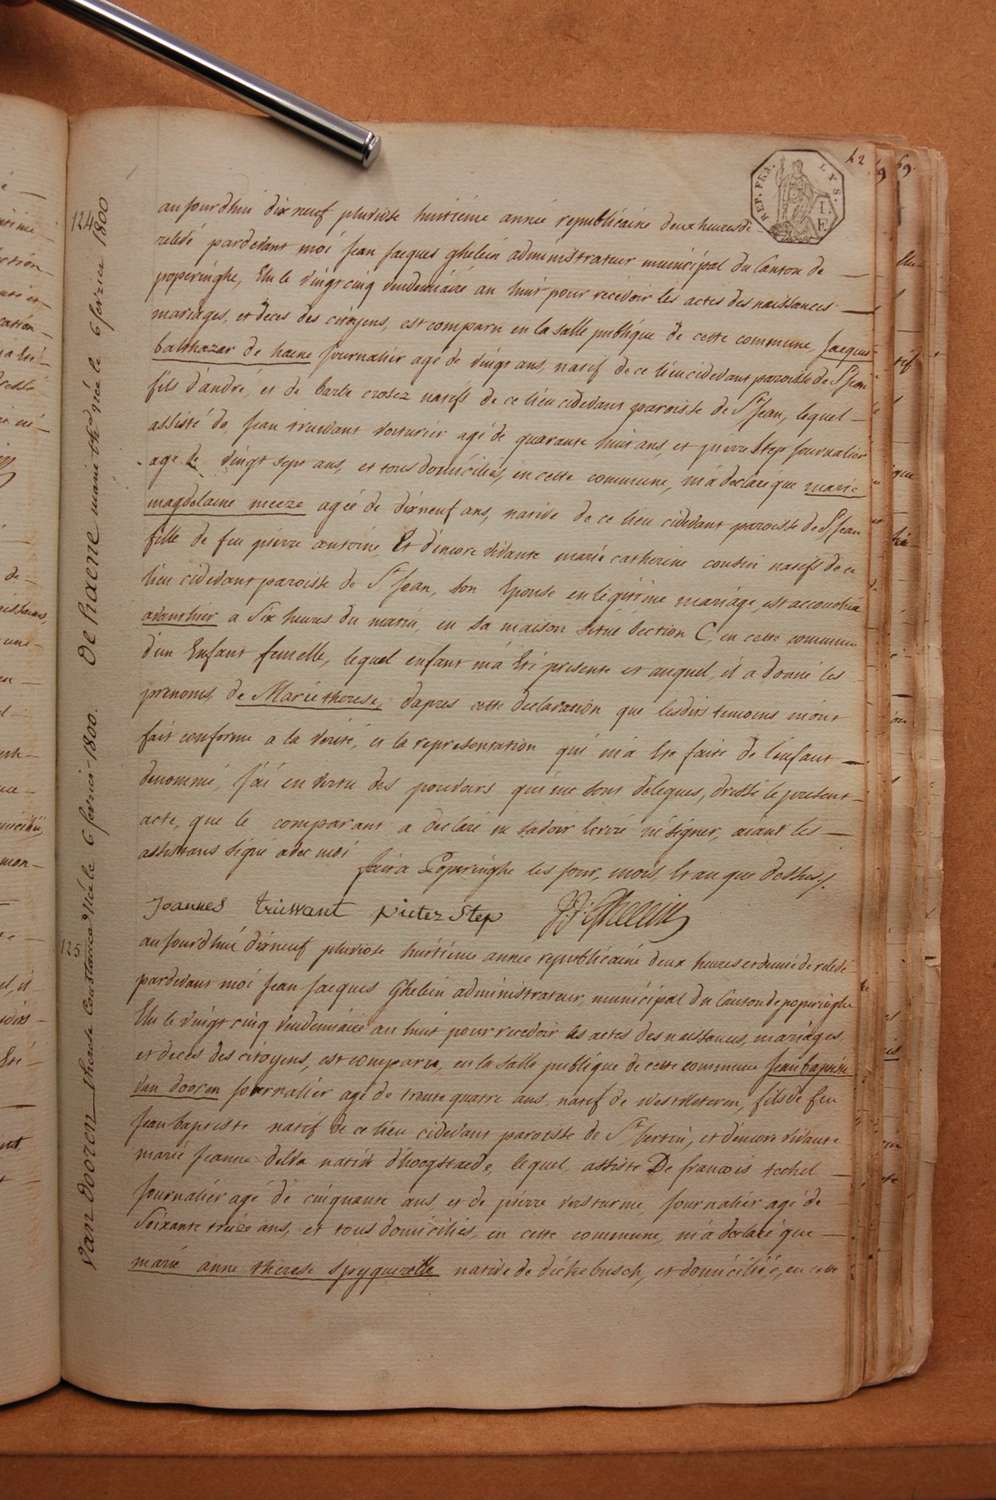 42
REP. FRA.
LYS.
124
De haene marie th. née le 6 fevrier 1800
aujourd'hui dixneuf pluviôse huitieme année republicaine deux heures de
relevé pardevant moi Jean Jacques Ghelein administrateur municipal du Canton de
poperinghe, Elu le vingt cinq vendemiaire an huit pour recevoir les actes des naissances
mariages, et deces des citoyens, est comparu en la salle publique de cette commune, Jacques
balthazar de haene Journalier agé de vingt ans, natif de ce lieu cidevant paroisse de St Jean
fils d'andré, et de barbe crosez natifs de ce lieu cidevant paroisse de St Jean, lequel
assisté de Jean truwant voiturier agé de quarante huit ans, et pierre Step Journalier
agé de vingt sept ans, et tous domiciliés, en cette commune, m'a declaré que marie
magdelaine meeze agée de dixneuf ans, native de ce lieu cidevant paroisse de St Jean
fille de feu pierre antoine Et d'encore vivante marie catherine cousin natifs de ce
lieu cidevant paroisse de St Jean, son Epouse en legitime mariage, est accouchée
avanthier a six heures du matin, en sa maison située section C, en cette commune
d'un Enfant femelle, lequel enfant m'a été presenté et auquel, il a donné les
prenoms de Marie therese, d'apres cette declaration que lesdits temoins m'ont
fait conforme a la verité, et la representation qui m'a été faite de l'enfant
denommé, J'ai en vertu des pouvoirs qui me sont delegues, dressé le present
acte, que le comparant a declaré ne savoir ecrire ni signer, aiant les
assistans signé avec moi
fait a Poperinghe les jour, mois et an que dessus.
Joannes truwant pieter Step JJ Ghelein
125
Van Dooren therese Constance Née le 6 fevrier 1800.
aujourd'hui dixneuf pluviose huitieme annee republicaine deux heures et demie de relevé
pardevant moi Jean Jacques Ghelein administrateur, municipal du Canton de poperinghe
Elu le vingt cinq vendemiaire an huit pour recevoir les actes des naissances, mariages
et deces des citoyens, est comparu, en la salle publique de cette commune Jean baptiste
van dooren Journalier agé de trente quatre ans, natif de westvleteren, fils de feu
Jean baptiste natif de ce lieu cidevant paroisse de St bertin, et d'encore vivante
marie Jeanne delva native d'hoogstaede, lequel assisté De francois techel
Journalier agé de cinquante ans, et de pierre versturme, Journalier agé de
soixante treize ans, et tous domiciliés, en cette commune, m'a declaré que
marie anne therese Spyquerelle native de dickebusch, et domiciliée, en cette